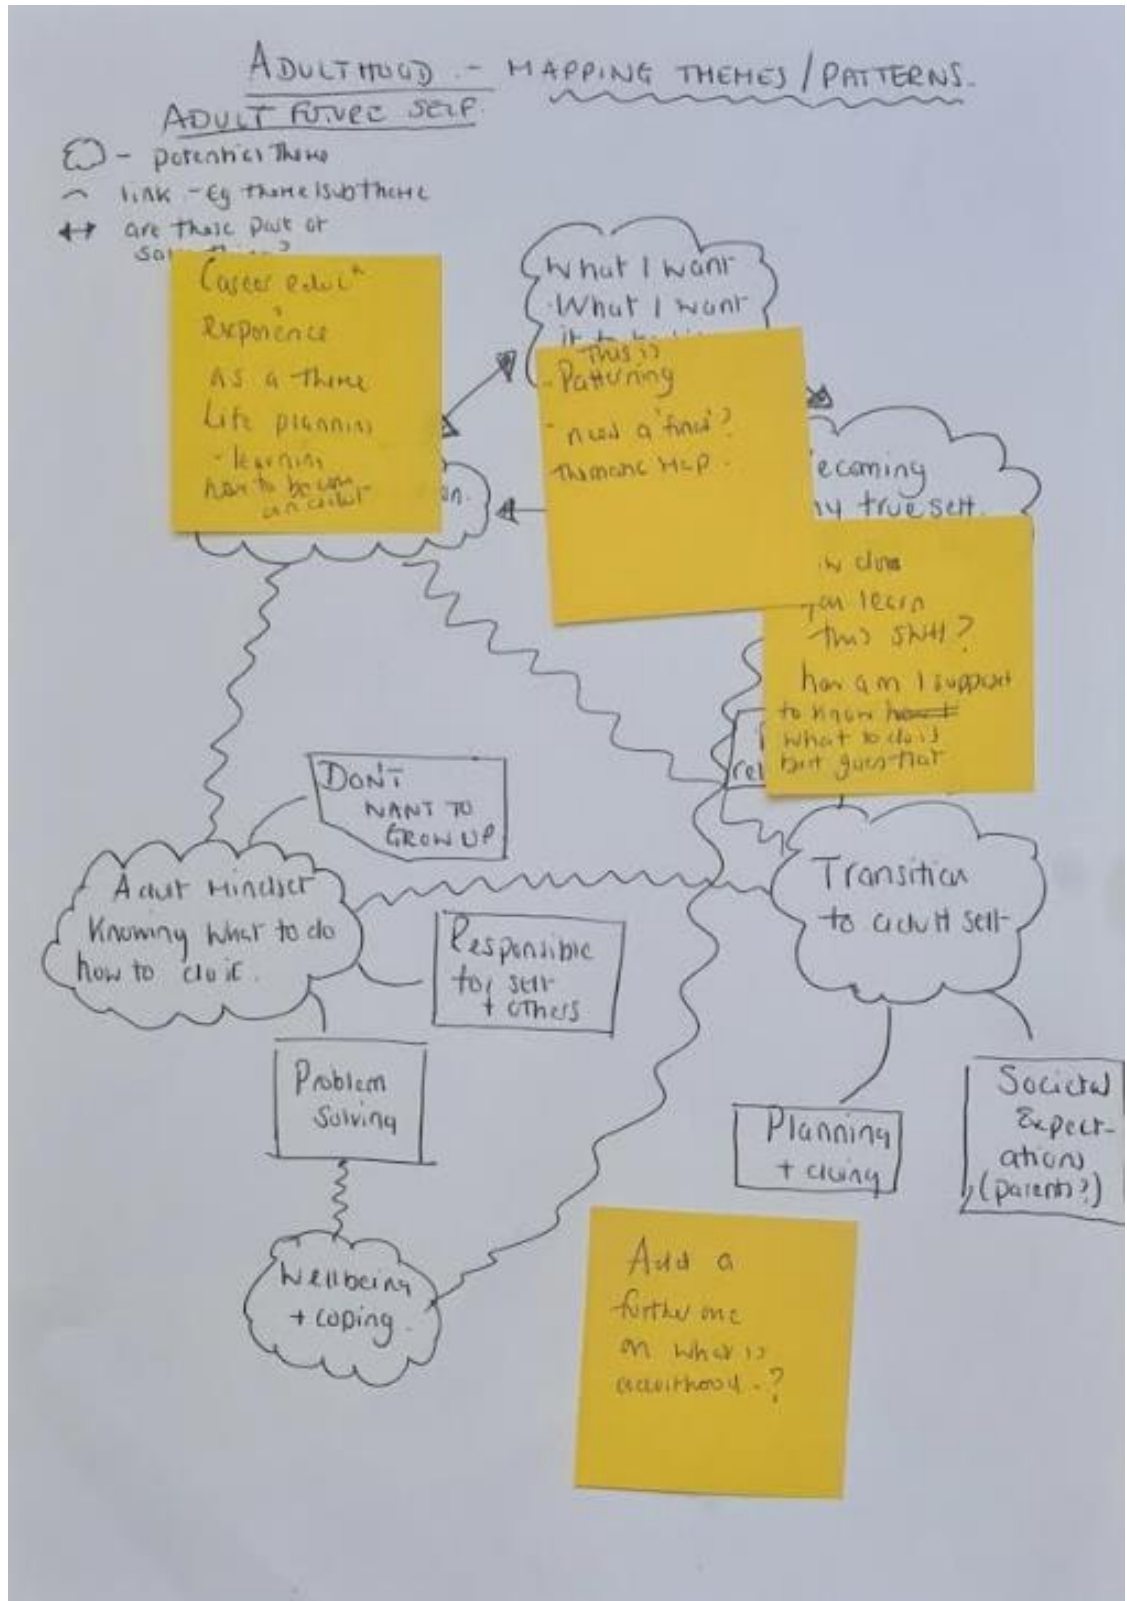 ADULTHOOD - MAPPING THEMES / PATTERNS.
ADULT FUTURE SELF.
- potential theme
link - eg theme/subtheme
are these part of
Career educⁿ
experience
as a theme
Life planning
- learning
how to become
an adult
on.
What I want
What I want
This is
- Patterning
- need a 'final'?
thematic map.
ecoming
my true self.
you learn
this shit?
how am I support
to know
what to do is
best guess that
rel
DON'T
WANT TO
GROW UP
Adult Mindset
Knowing what to do
how to do it.
Responsible
for self
+ others
Transition
to adult self
Problem
solving
Planning
+ doing
Societal
Expect-
ations
(parents?)
Wellbeing
+ coping.
Add a
further one
on what is
adulthood.?